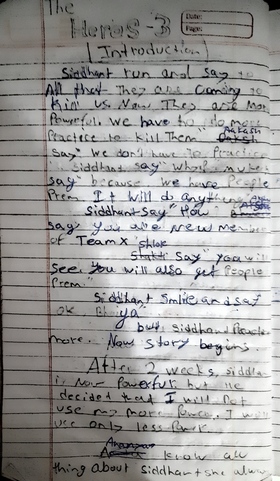 The
Heros-3
Date:
Page:
Introduction
Siddhant run and say to
All that They are Coming to
Kill us Now They are More
Powerful we have to do more
Practice to kill Them" Aakash
Say" we don't have to Practice
Siddhant say" Why
say because we have People
Prem It will do anything
Siddhant Say "How
says you are New member
of Team X Shlok
Say "you will
see you will also get People
Prem"
Siddhant Smile and say
ok ya"
but Siddhant Practice
more. Now story begins.
After 2 weeks, siddhant
is Now Powerful but He
decided that I will Not
use my more Power, I will
use only less
know all
thing about Siddhant she